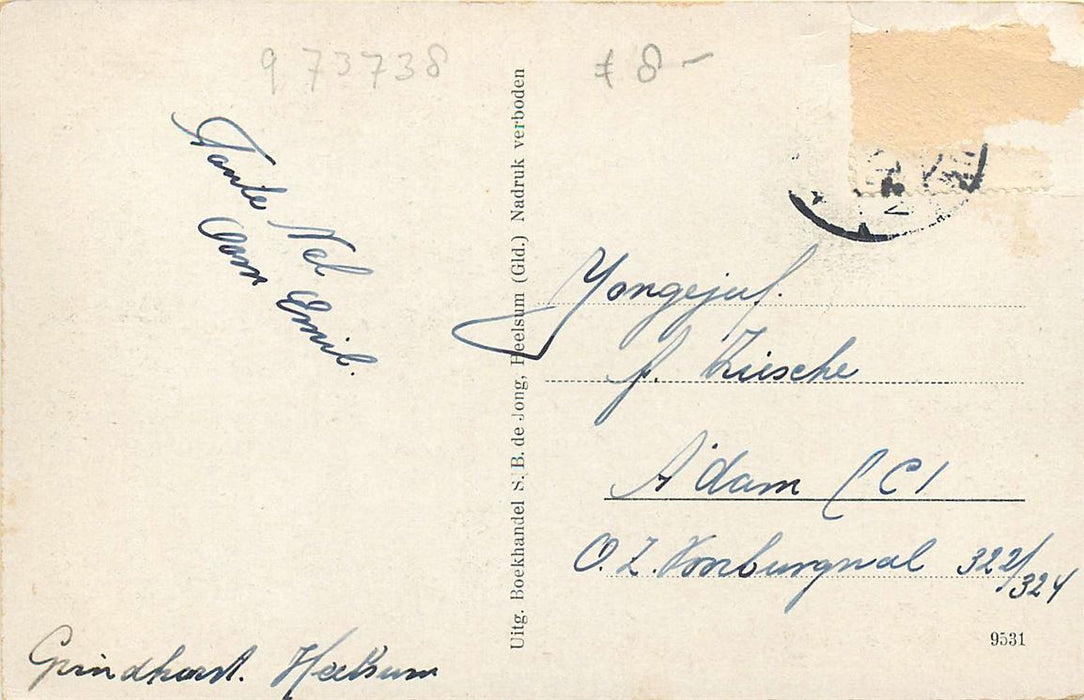 973738
8-
Tante Nel
Oom Emil.
Grindhorst. Heelsum
Uitg. Boekhandel S. B. de Jong, Heelsum (Gld.) Nadruk verboden
Yongejuf.
A'dam (C)
O.Z. Voorburgwal 322/324
9531